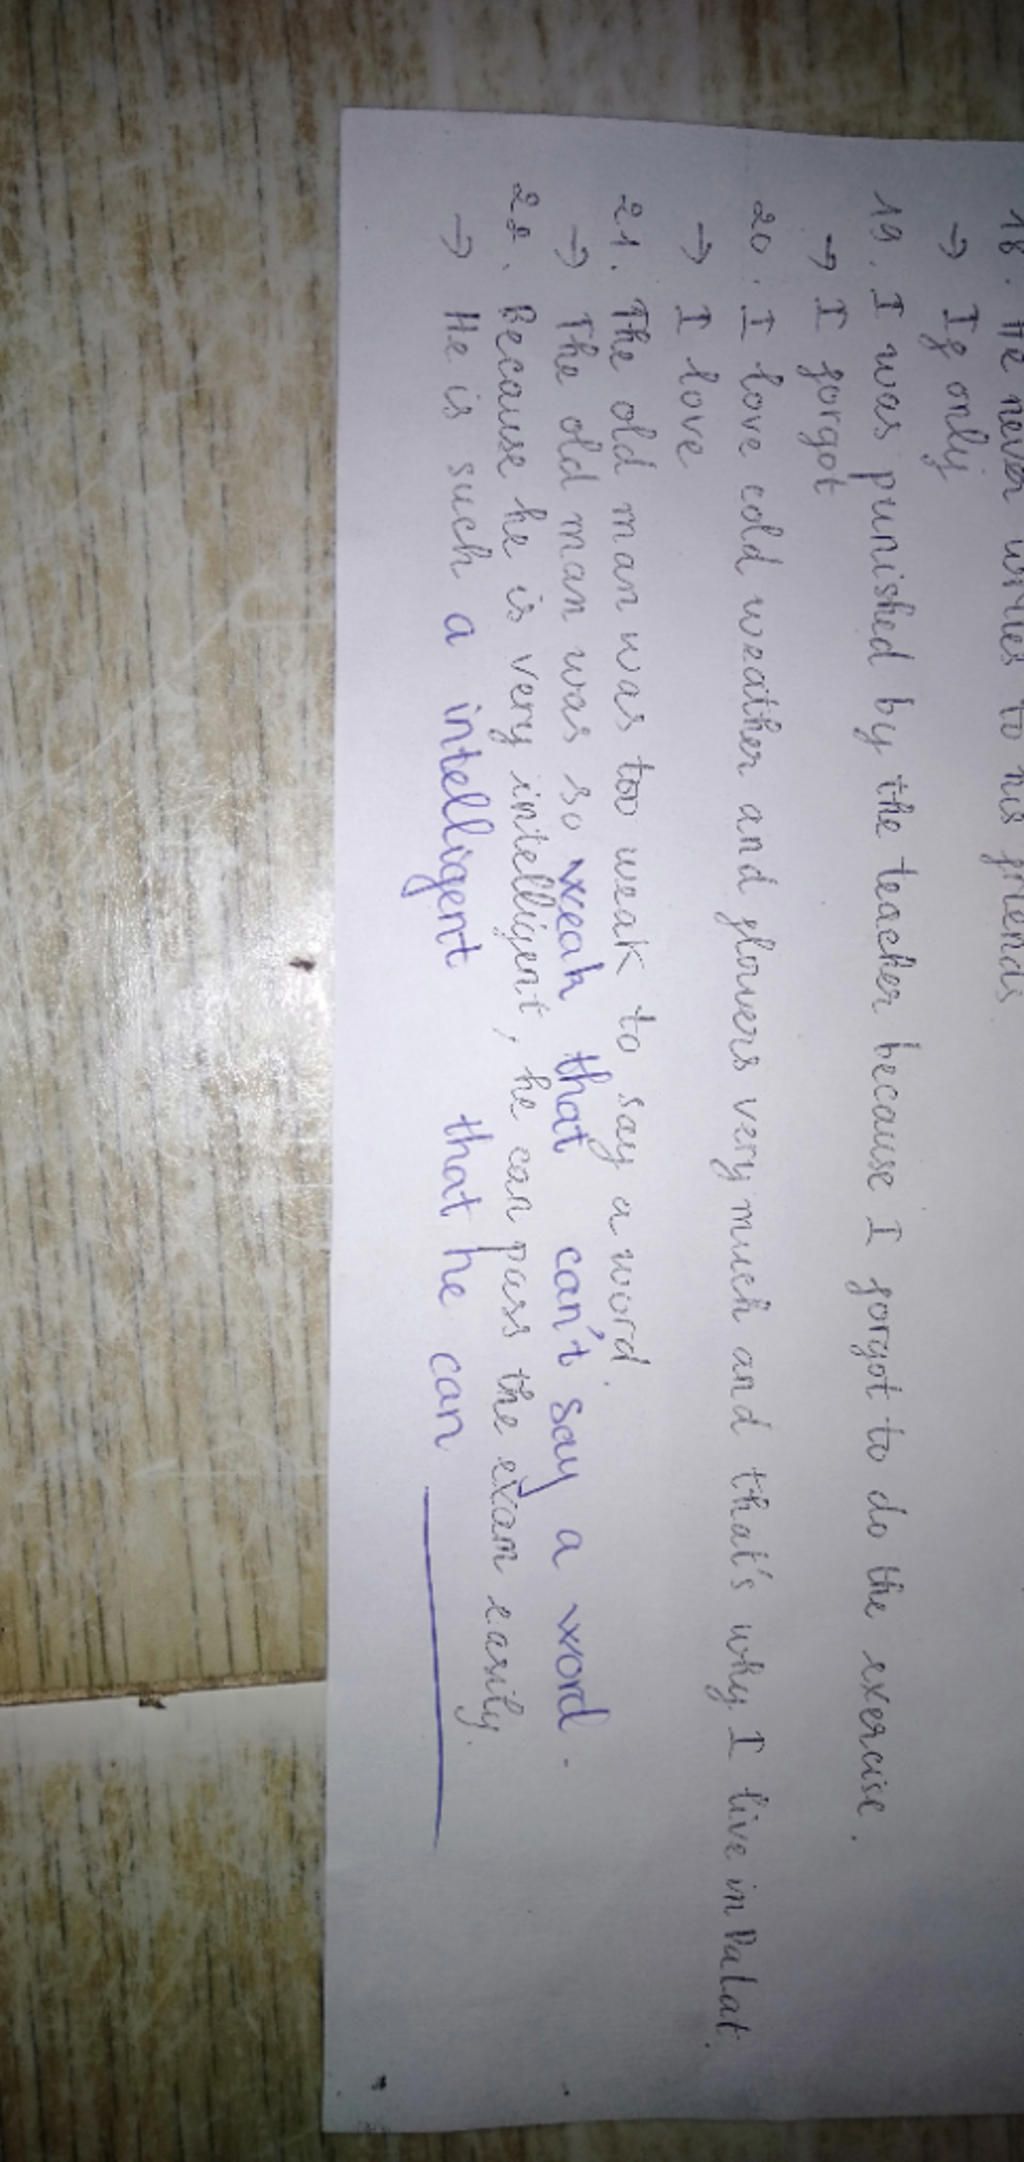 18. He never writes to his friends
→ If only
19. I was punished by the teacher because I forgot to do the exercise.
→ I forgot
20. I love cold weather and flowers very much and that's why I live in Dalat.
→ I love
21. The old man was too weak to say a word.
→ The old man was so weak that can't say a word.
22. Because he is very intelligent, he can pass the exam easily.
→ He is such a intelligent that he can